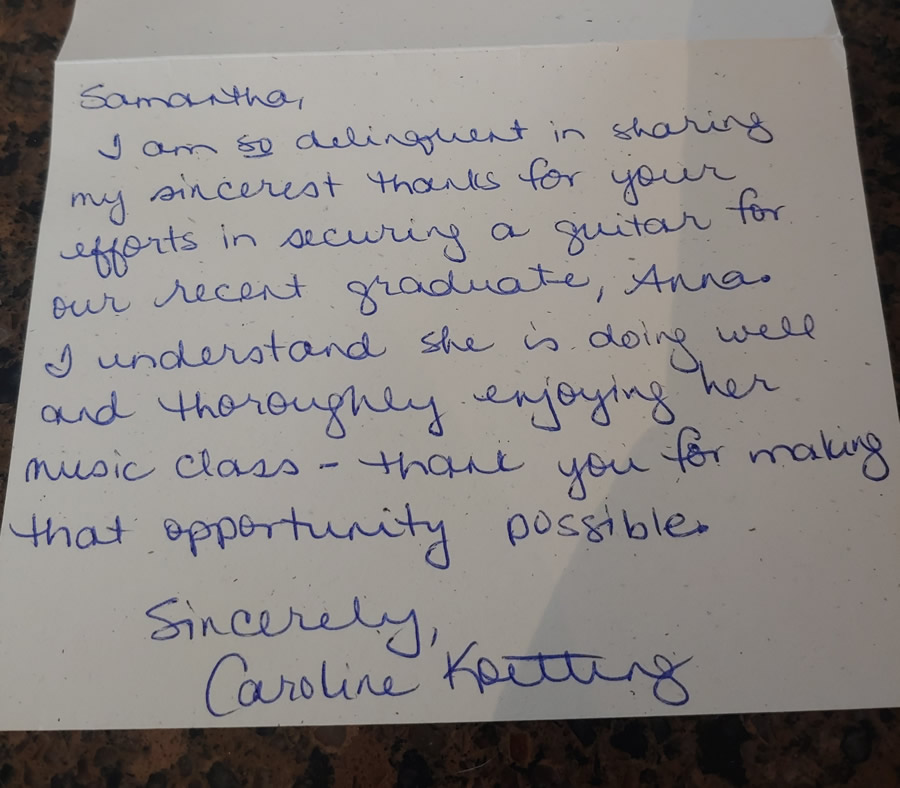 Samantha,
I am so delinquent in sharing
my sincerest thanks for your
efforts in securing a guitar for
our recent graduate, Anna.
I understand she is doing well
and thoroughly enjoying her
music class - thank you for making
that opportunity possible.
Sincerely,
Caroline Koetting